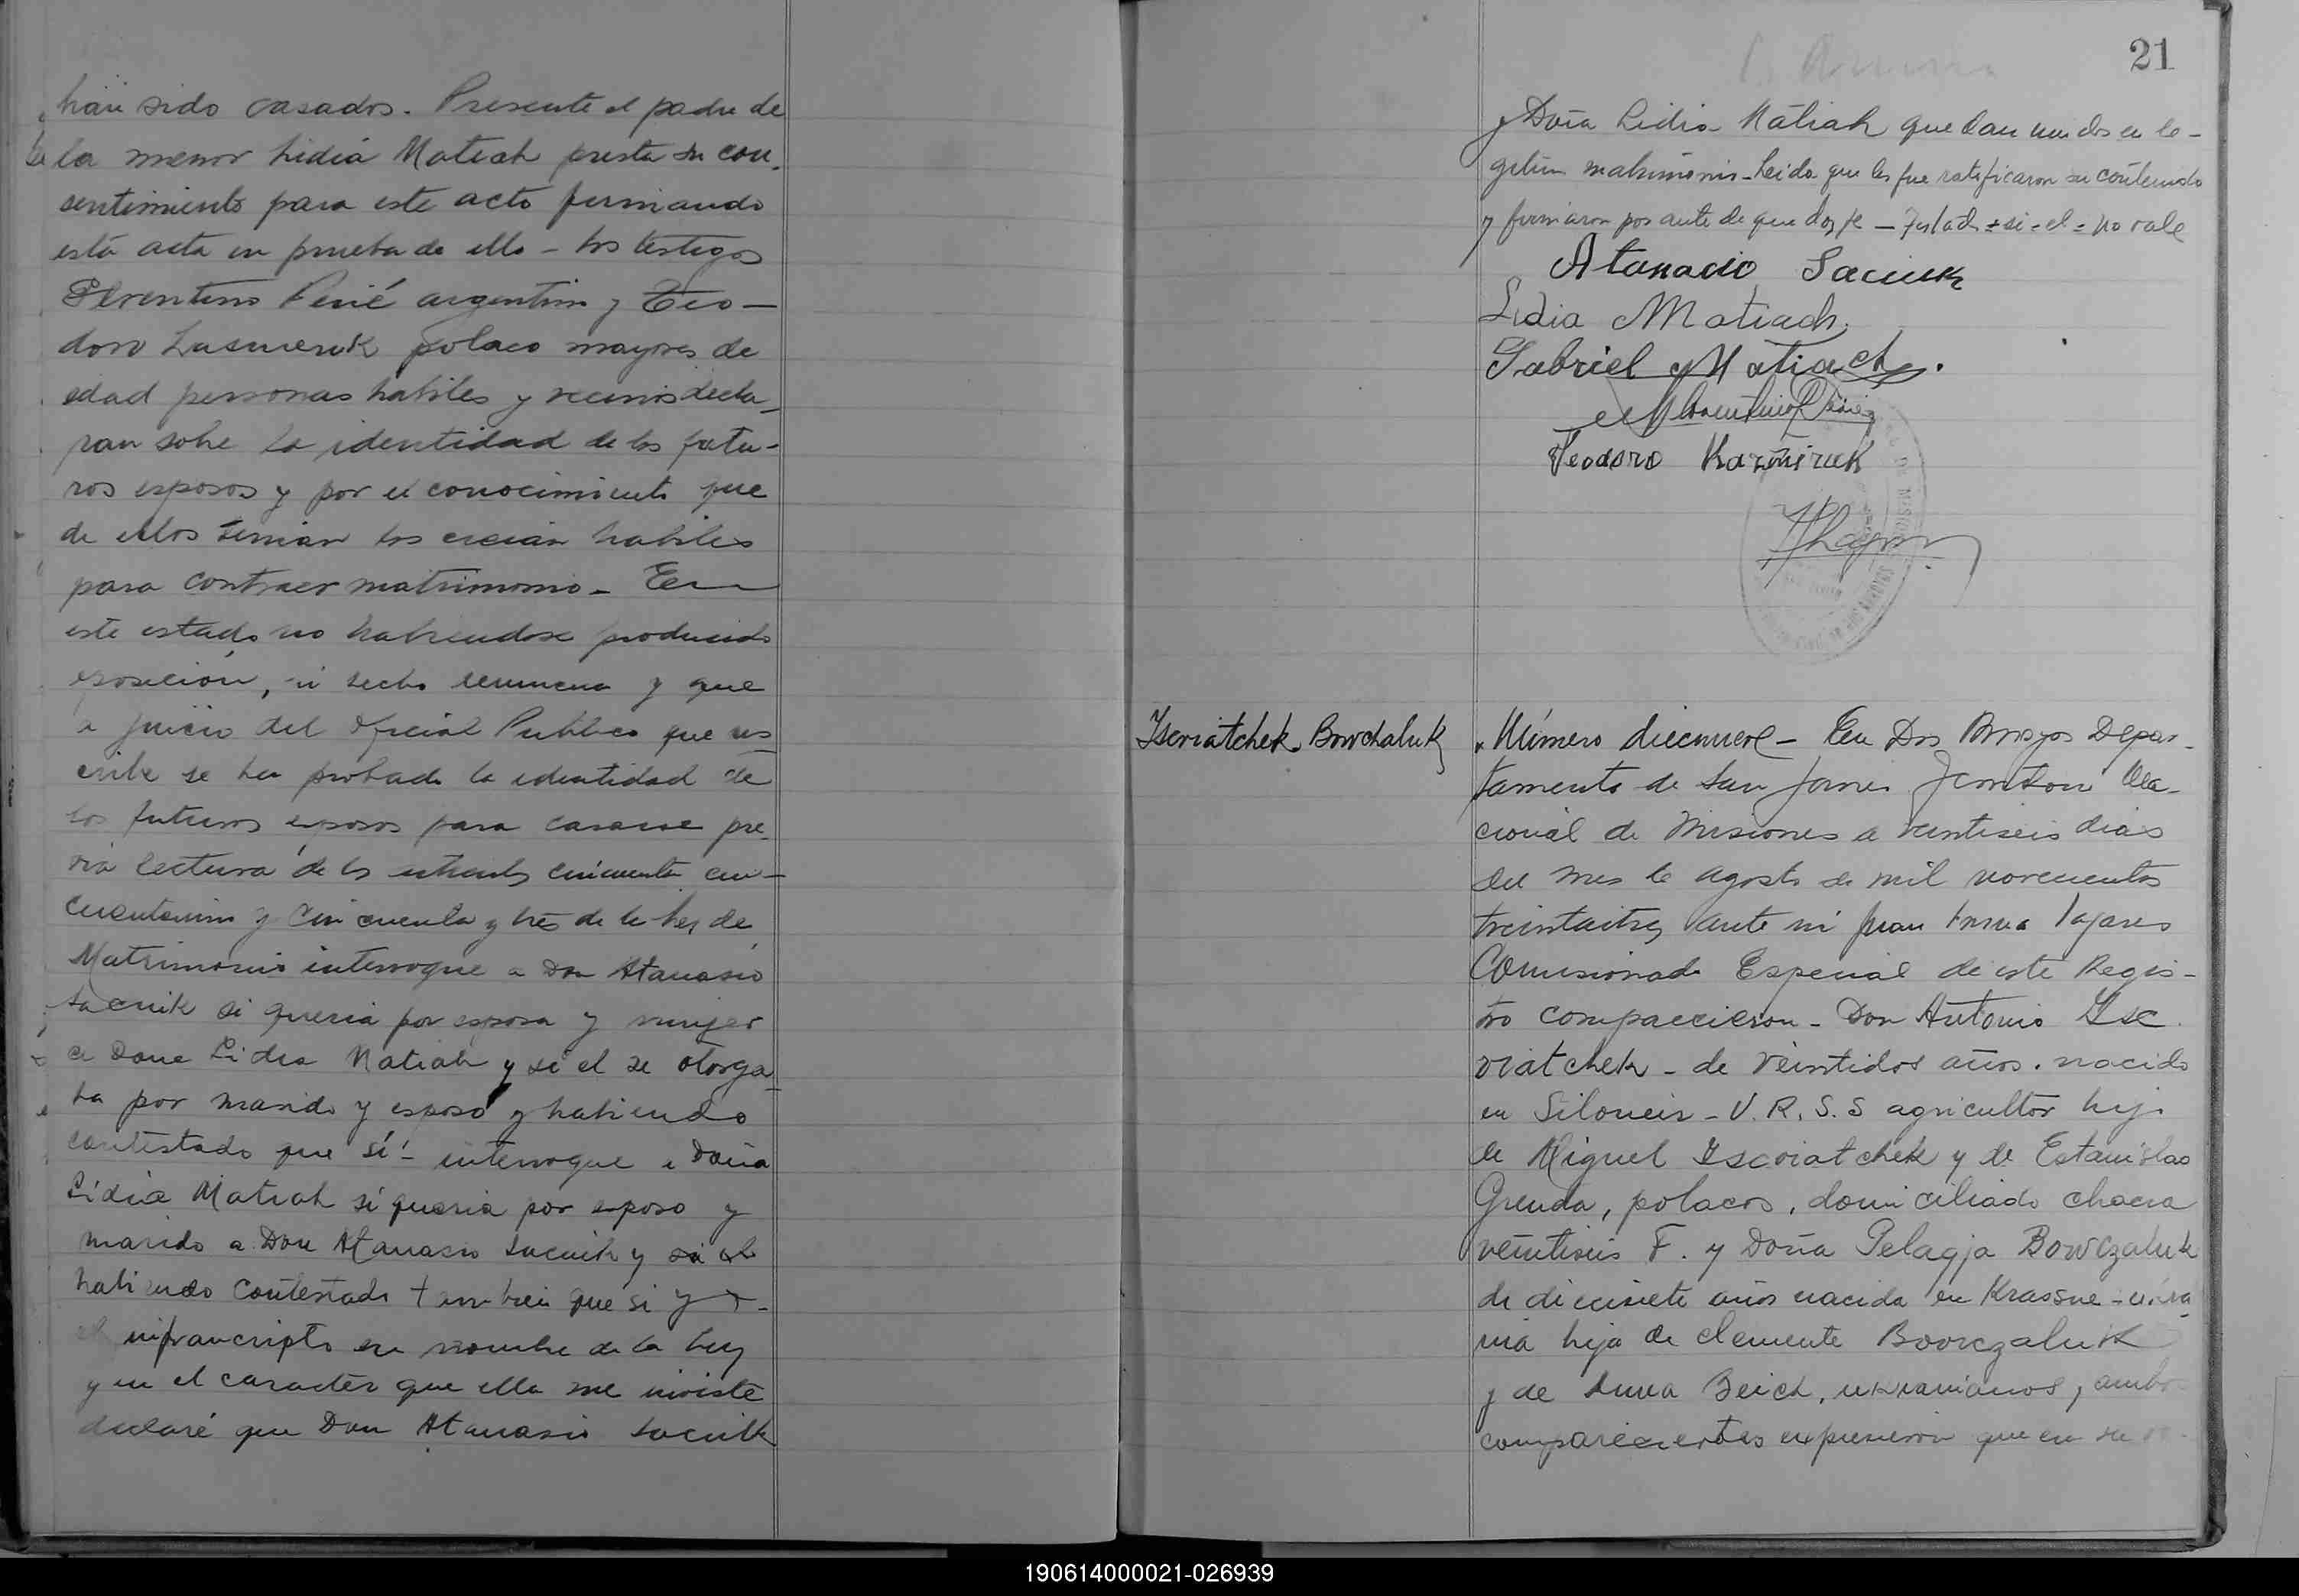 han sido casados. Presente el padre de
la menor Lidia Matiach presta su con-
sentimiento para este acto firmando
esta acta en prueba de ello - Los testigos
Florentino Perié argentino y Teo-
doro polaco mayores de
edad personas habiles y vecinos decla-
ran sobre la identidad de los futu-
ros esposos y por el conocimiento que
de ellos tenian los creian habiles
para contraer matrimonio - En
este estado no habiendose producido
oposición, ni hecho renuncia y que
a juicio del Oficial Publico que sus-
cribe se ha probado la identidad de
los futuros esposos para casarse pre-
via lectura de los articulos cincuenta cin-
cuentaiuno y cincuenta y tres de la ley de
Matrimonio interrogue a Don Atanasio
Saciuk si queria por esposa y mujer
a Doña Lidia Matiah y si el se otorga-
ba por marido y esposo y habiendo
contestado que sí - interrogue a Doña
Lidia Matiah si queria por esposo y
marido a Don Atanasio Saciuk y si el
habiendo contestado tambien que si y
el infrascripto en nombre de la ley
y en el caracter que ella me inviste
declaré que Don Atanasio Saciuk
21
y Doña Lidia Matiah quedan unidos en le-
gitimo matrimonio - Leida que les fue ratificaron su contenido
y firmaron por ante de que doy fe - Testado = si = el = no vale
Atanacio Saciuk
Lidia Matiach
Gabriel Matiach.
Florentino Perié
Teodoro Kazmiruk
Yscriatchek Bowchaluk
Número diecinueve - En Dos Arroyos Depar-
tamento de San Javier Territorio Na-
cional de Misiones a veintiseis dias
del mes de agosto de mil novecientos
treintaitres ante mi Juan Lagares
Comisionado Especial de este Regis-
tro comparecieron - Don Antonio Ysc
riatchek - de veintidos años. nacido
en Siloneis - U.R.S.S agricultor hijo
de Miguel Yscriatchek y de Estanislao
Grenda, polacos, domiciliado chacra
veintiseis F. y Doña Pelagja Bowczaluk
de diecisiete años nacida en Krassne - ucra
nia hija de Clemente Bowczaluk
y de Anna Beich, ukranianos, ambos
comparecientes expusieron que en su